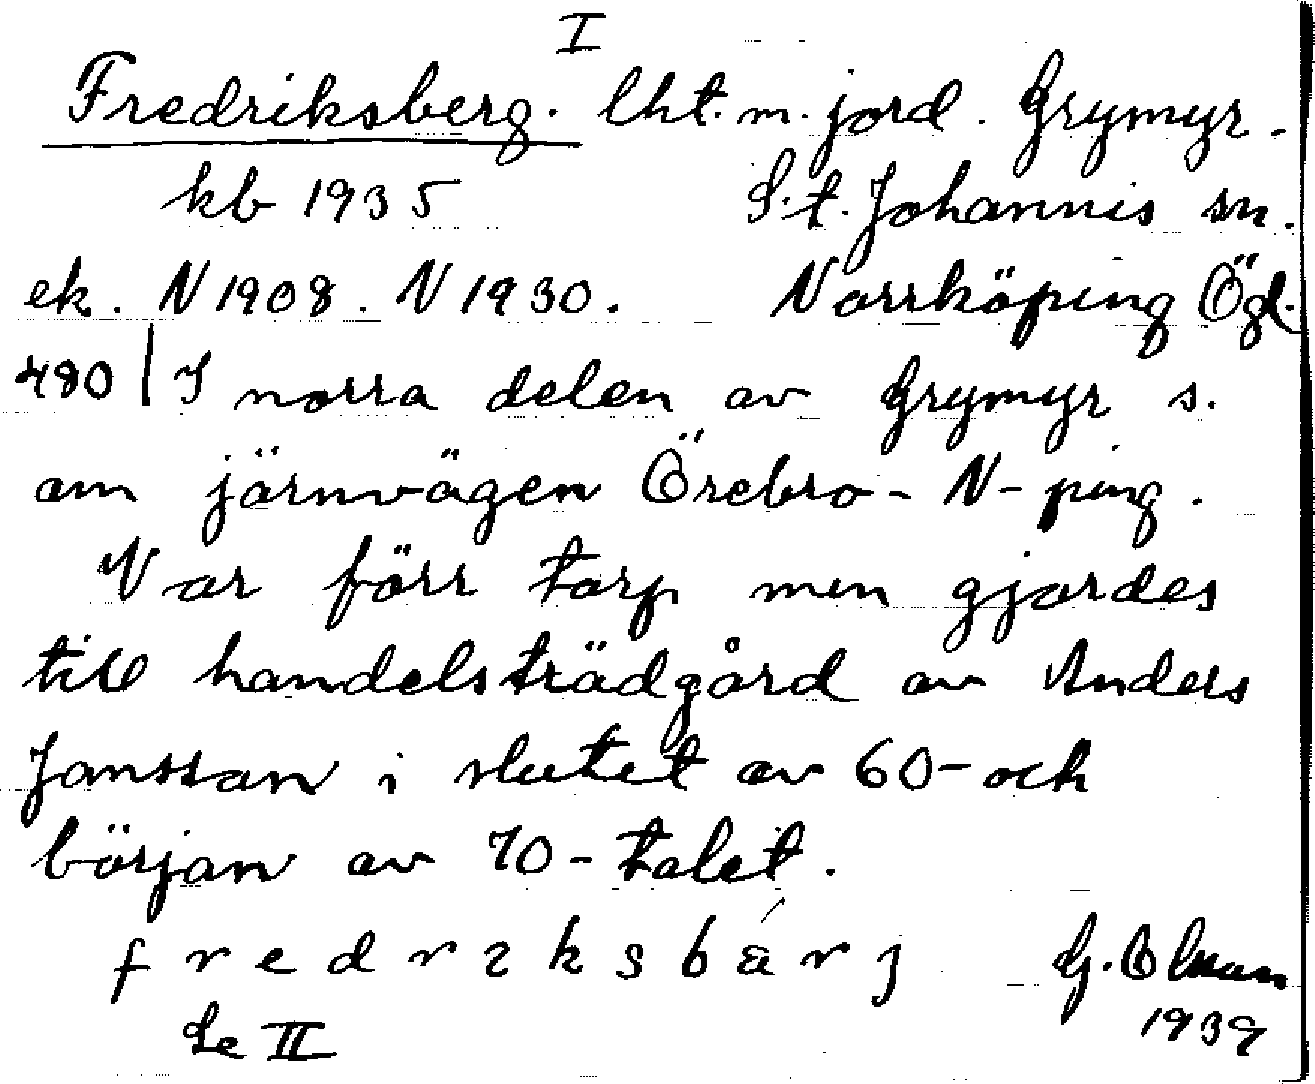 I
Fredriksberg. lht. m. jord. Grymyr.
kb 1935 S:t. Johannis sn.
ek. N 1908. N 1930. Norrköping Ögl.
480 | I norra delen av Grymyr s.
om järnvägen Örebro - N-ping.
Var förr torp men gjordes
till handelsträdgård av Anders
Jonsson i slutet av 60- och
början av 70-talet.
fredrıksbá̈rj G. Olsson
Se II 1939